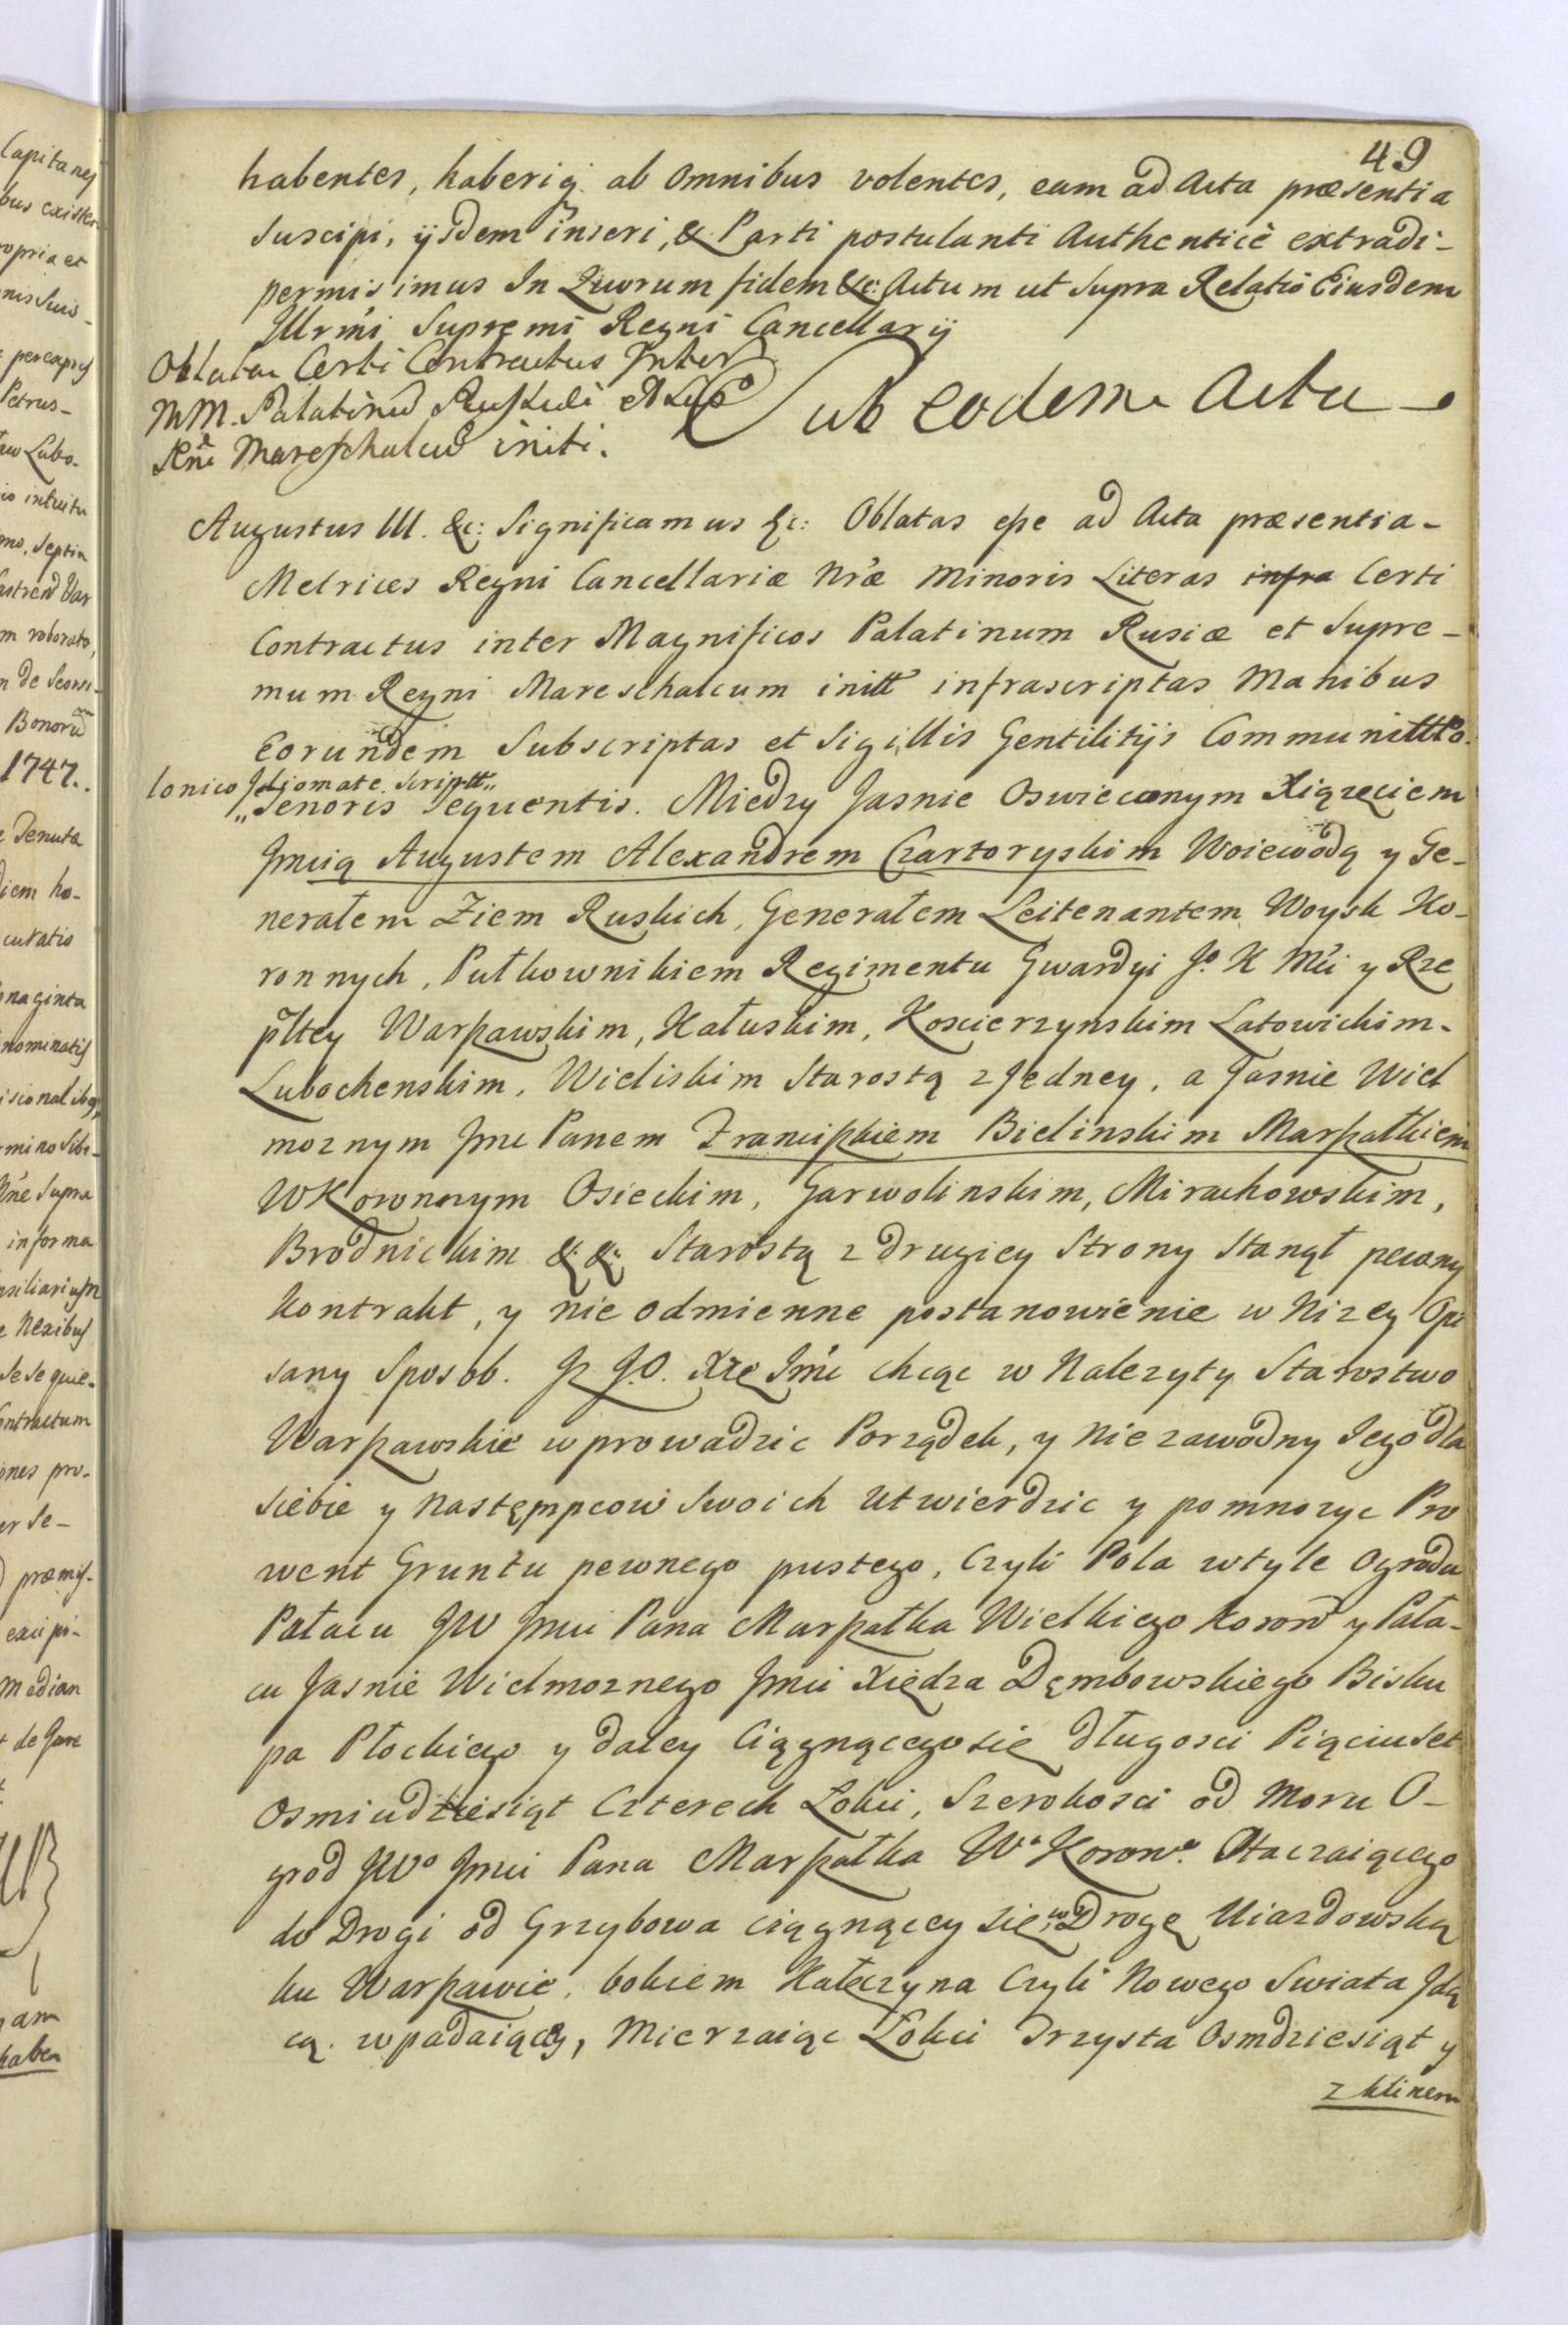 49
habentes, haberiq. ab Omnibus volentes, eam ad Acta præsentia
Suscipi, ijsdem inseri, & Parti postulanti Authenticè extradi-
permisimus In Quorum fidem &c: Actum ut Supra Relatio Eiusdem
Illrmi Supremi Regni Cancellarij
Oblata Certi Contractus Inter
MM. Palatinū Russiæ et Sup
Rni Mareschalcū initi.
Sub eodem Actu
Augustus III. &c: Significamus &c: Oblatas esse ad Acta præsentia-
Metrices Regni Cancellariæ Nræ Minoris Literas infra Certi
Contractus inter Magnificos Palatinum Rusiæ et Supre-
mum Regni Mareschalcum initt infrascriptas Manibus
Eorundem Subscriptas et Sigillis Gentilitijs Communittt Po-
lonico Idiomate Scriptt
Tenoris Sequentis. Miedzy Jasnie Oswieconym Xiązęciem
Jmcią Augustem Alexandrem Czartoryskim Woiewodą y Ge-
nerałem Ziem Ruskich, Generałem Leitenantem Woysk Ko-
ronnych, Pułkownikiem Regimentu Gwardyi Jº K Mci y Rze
pltey Warszawskim, Kałuskim, Koscierzynskim Latowickim-
Lubochenskim, Wieliskim Starostą z Jedney, a Jasnie Wiel
moznym Jmc Panem Franciszkiem Bielinskim Marszałkiem
WKoronnym Osieckim, Garwolinskim, Mirachowskim,
Brodnickim &: &: Starostą z drugiey Strony Stanął pewny
Kontrakt, y nie odmienne postanowienie w Nizey Opi
sany Sposob. Jz J.O. Xże Jmć chcąc w Nalezyty Starostwo
Warszawskie wprowadzic Porządek, y Nie zawodny Jego dla
Siebie y Następpcow Swoich Utwierdzic y pomnozyc Pro
went Gruntu pewnego pustego, Czyli Pola wtyle Ogrodu
Pałacu JW Jmci Pana Marszałka Wielkiego Koron y Pała-
cu Jasnie Wielmoznego Jmci Xiędza Dęmbowskiego Bisku
pa Płockiego y daley Ciągnącego się długosci Pięciuset
Osmiudziesiąt Czterech Łokci, Szerokosci od Moru O-
grod JWº Jmci Pana Marszałka Wº Koronº. Otaczaiącego
do Drogi od Grzybowa ciągnącey się w Drogę Uiazdowską
ku Warszawie, bokiem Kałęczyna Czyli Nowego Swiata Jdą
cą. wpadaiącey, Mierzaiąc Łokci Trzysta Osmdziesiąt y
z klinem